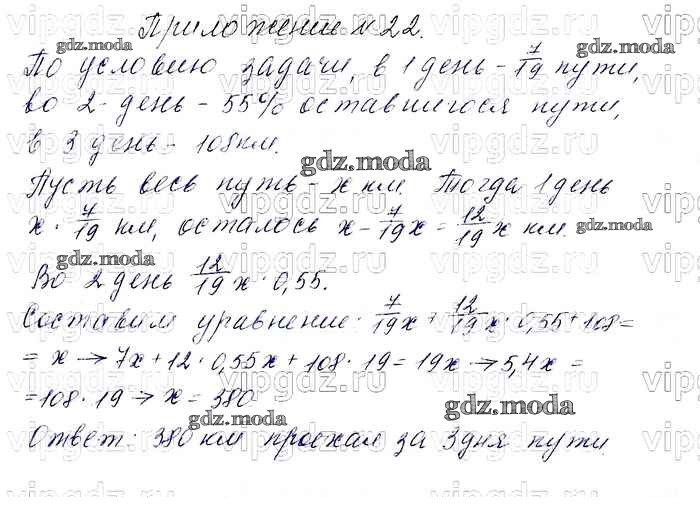 Приложение №22.
По условию задачи, в 1 день - 7/19 пути,
во 2 день - 55% оставшегося пути,
в 3 день - 108 км.
Пусть весь путь - x км. Тогда 1 день
x · 7/19 км, осталось x - 7/19 x = 12/19 x км.
Во 2 день 12/19 x · 0,55.
Составим уравнение: 7/19 x + 12/19 x · 0,55 + 108 =
= x → 7x + 12 · 0,55x + 108 · 19 = 19x → 5,4x =
= 108 · 19 → x = 380
Ответ: 380 км проехал за 3 дня пути.
gdz.moda
vipgdz.ru